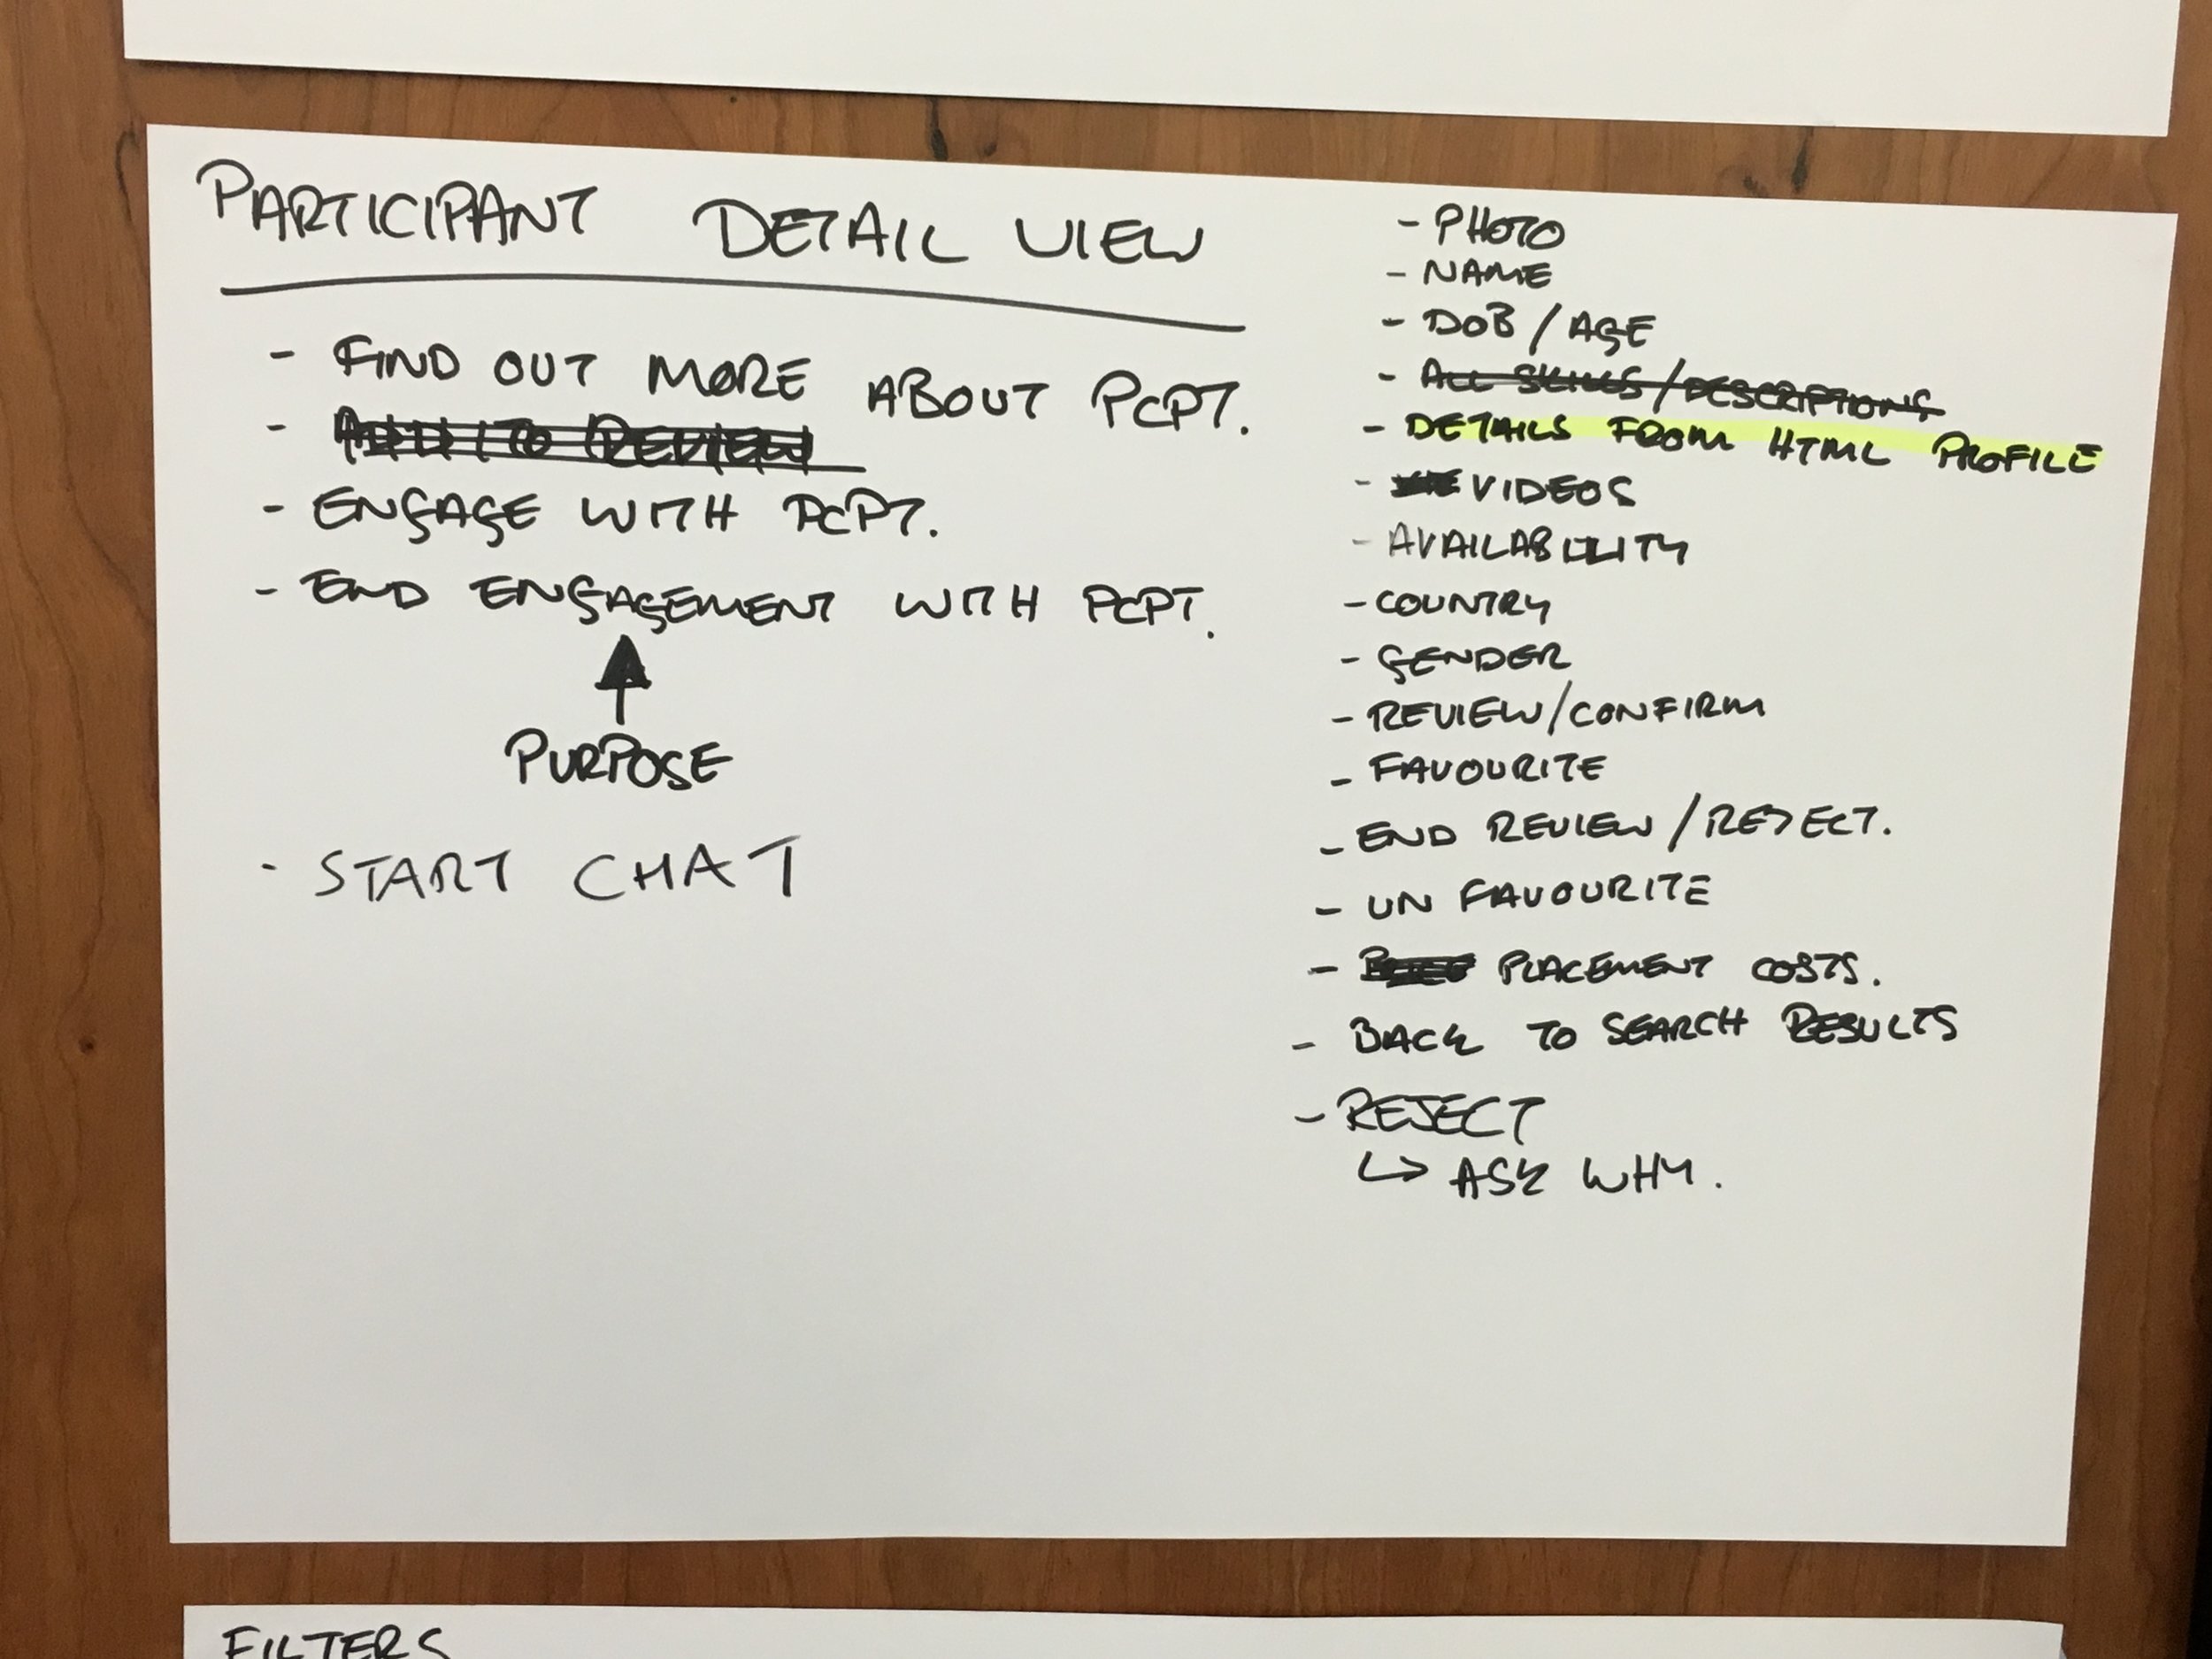 PARTICIPANT DETAIL VIEW
- FIND OUT MORE ABOUT PCPT.
- ADD TO REVIEW
- ENGAGE WITH PCPT.
- END ENGAGEMENT WITH PCPT.
PURPOSE
- START CHAT
- PHOTO
- NAME
- DOB / AGE
- ALL SKILLS / DESCRIPTIONS
- DETAILS FROM HTML PROFILE
- VIDEOS
- AVAILABILITY
- COUNTRY
- GENDER
- REVIEW/CONFIRM
- FAVOURITE
- END REVIEW / REJECT.
- UN FAVOURITE
- PLACEMENT COSTS.
- BACK TO SEARCH RESULTS
- REJECT
↳ ASK WHY.
FILTERS